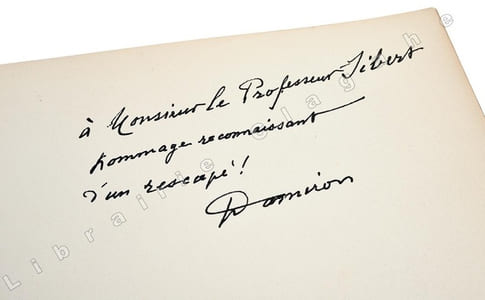 à Monsieur le Professeur Sébert
hommage reconnaissant
d'un rescapé!
Damiron
Librairie Elaghe